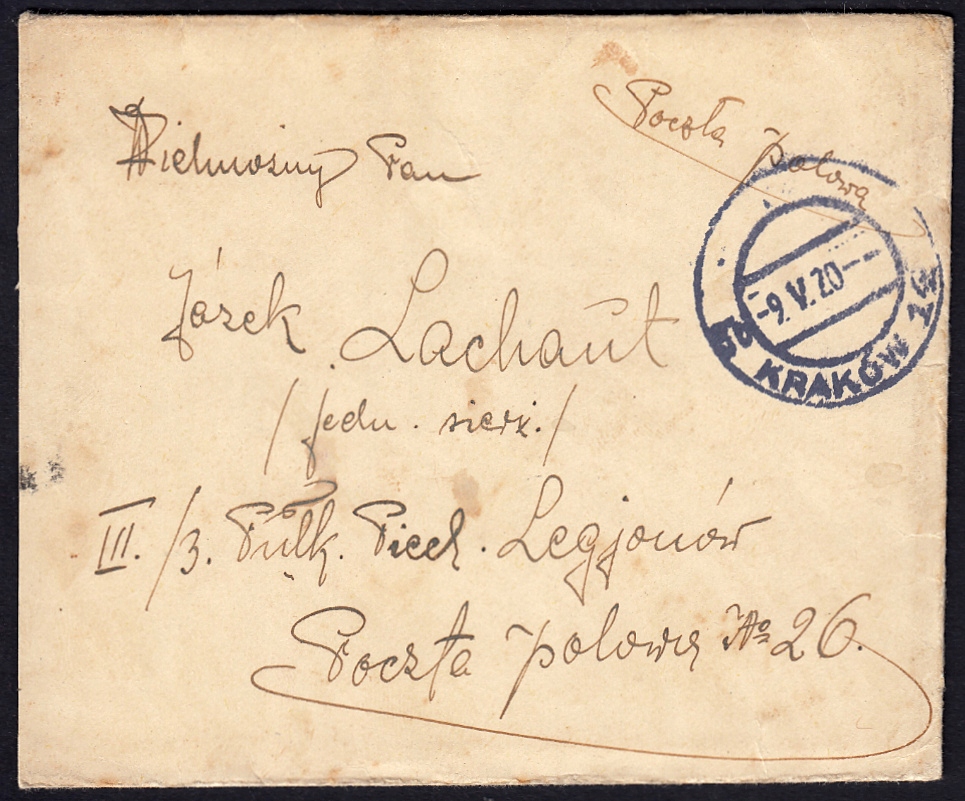 Poczta polowa
Wielmożny Pan
Józek Lachaut
/jedn. sierż./
III./3. Pułk. Piech. Legjonów
Poczta polowa No 26.
KRAKÓW
-9.V.20-